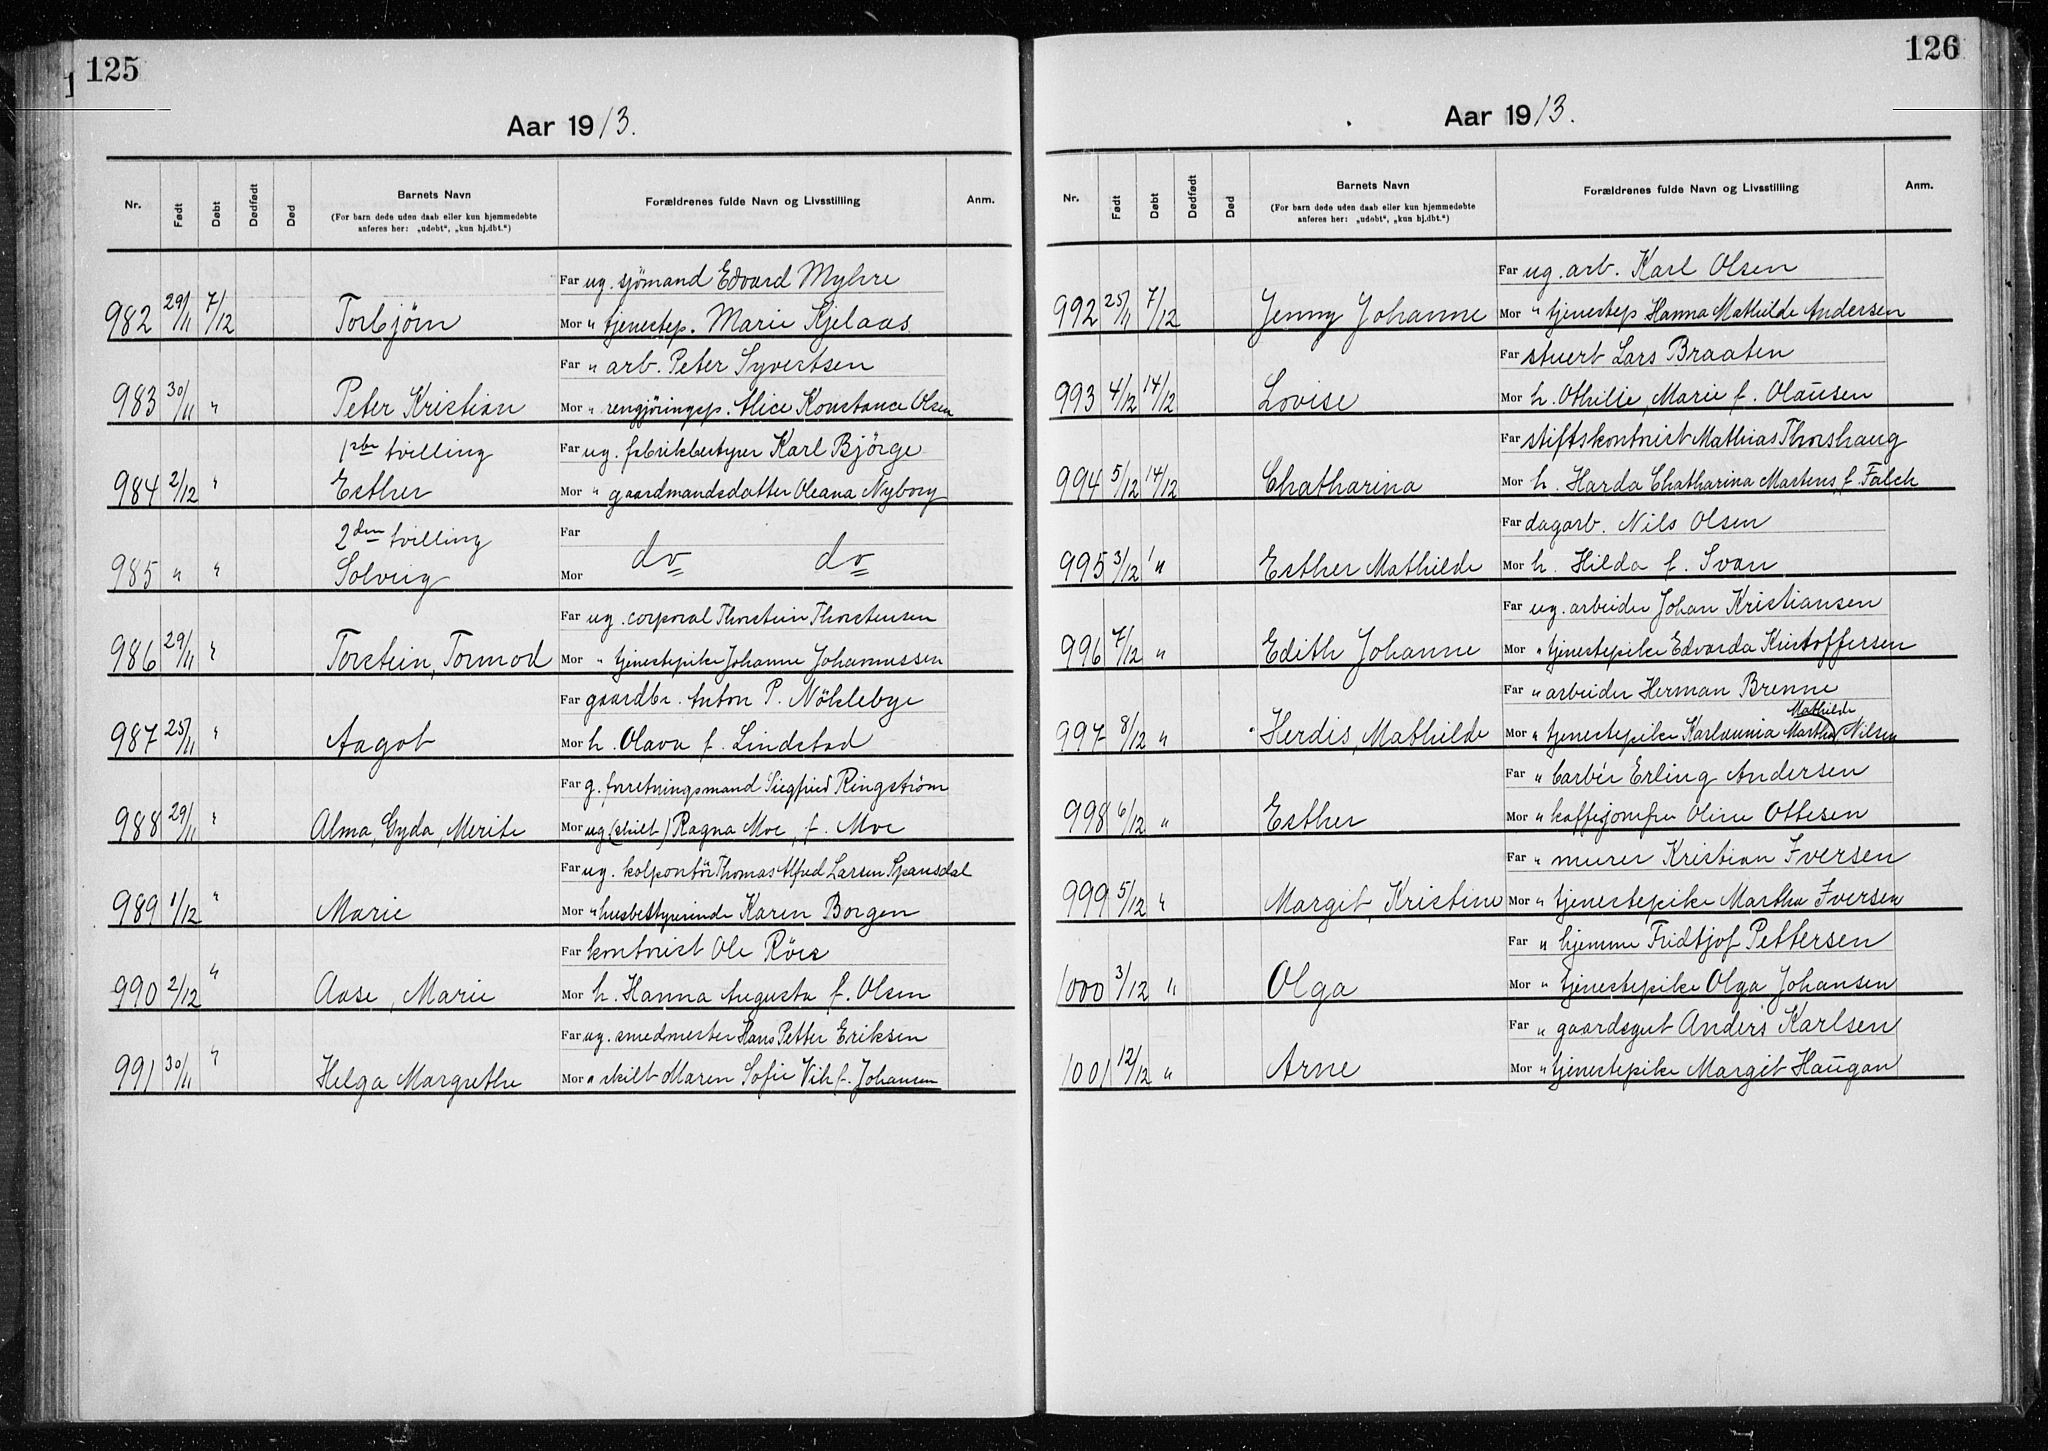 125
Aar 1913.
Nr. Født Døbt Dødfødt Død Barnets Navn Forældrenes fulde Navn og Livsstilling Anm.
(For barn døde uden daab eller kun hjemmedøbte
anføres her: „udøbt“, „kun hj.dbt.“)
Far ug. sjømand Edvard Myhre
982 29/11 7/12 Torbjörn Mor " tjenestep. Marie Kjelaas
Far " arb. Peter Syvertsen
983 30/11 " Peter Kristian Mor " rengjöringsp. Alice Konstance Olsen
1ste tvilling Far ug. fabrikbestyrer Karl Bjørge
984 2/12 " Esther Mor " gaardmandsdatter Oleana Nyborg
2den tvilling Far
985 " " Solveig Mor do do
Far ug. corporal Thorstein Thorstensen
986 29/11 " Torstein, Tormod Mor " tjenestepike Johanne Johannessen
Far gaardbr. Anton P. Nöklebye
987 25/11 " Aagot Mor h. Olava f. Lindstad
Far g. forretningsmand Siegfried Ringstrøm
988 29/11 " Alma, Gyda, Merite Mor ug (skilt) Ragna Moe, f. Moe
Far ug. kolportör Thomas Alfred Larsen Spansdal
989 1/12 " Marie Mor " husbestyrerinde Karen Borgen
Far kontorist Ole Röer
990 2/12 " Aase, Marie Mor h. Hanna Augusta f. Olsen
Far ug. smedmester Hans Petter Eriksen
991 30/11 " Helga Margrethe Mor " skilt Maren Sofie Vik f. Johansen
126
Aar 1913.
Nr. Født Døbt Dødfødt Død Barnets Navn Forældrenes fulde Navn og Livsstilling Anm.
(For barn døde uden daab eller kun hjemmedøbte
anføres her: „udøbt“, „kun hj.dbt.“)
Far ug. arb. Karl Olsen
992 25/11 7/12 Jenny Johanne Mor " tjenestep Hanna Mathilde Andersen
Far stuert Lars Braaten
993 4/12 14/12 Lovise Mor h. Othilie, Marie f. Olausen
Far stiftskontorist Mathias Thorshaug
994 5/12 14/12 Chatharina Mor h. Harda Chatharina Martens, f. Falch
Far dagarb. Nils Olsen
995 3/12 " Esther Mathilde Mor h. Hilda f. Svan
Far ug. arbeider Johan Kristiansen
996 7/12 " Edith Johanne Mor " tjenestepike Edvarda Kristoffersen
Far " arbeider Herman Brenne
Mathilde
997 8/12 " Herdis, Mathilde Mor " tjenestepike Karlaunia Martha Nilsen
Far " barbér Erling Andersen
998 6/12 " Esther Mor " kaffejomfru Oline Ottesen
Far " murer Kristian Iversen
999 5/12 " Margit, Kristine Mor " tjenestepike Martha Iversen
Far " hjemme Fridtjof Pettersen
1000 3/12 " Olga Mor " tjenestepike Olga Johansen
Far " gaardsgut Anders Karlsen
1001 12/12 " Arne Mor " tjenestepike Margit Haugan